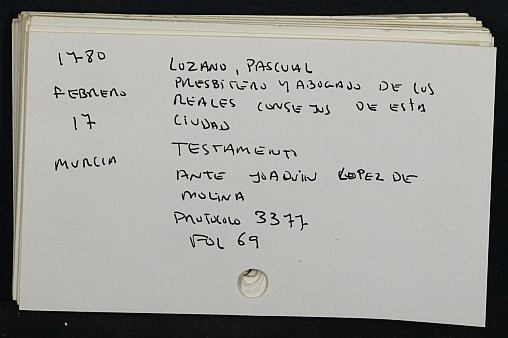 1780
FEBRERO
17
MURCIA
LOZANO, PASCUAL
PRESBITERO Y ABOGADO DE LOS
REALES CONSEJOS DE ESTA
CIUDAD
TESTAMENTO
ANTE JOAQUIN LOPEZ DE
MOLINA
PROTOCOLO 3377
FOL 69